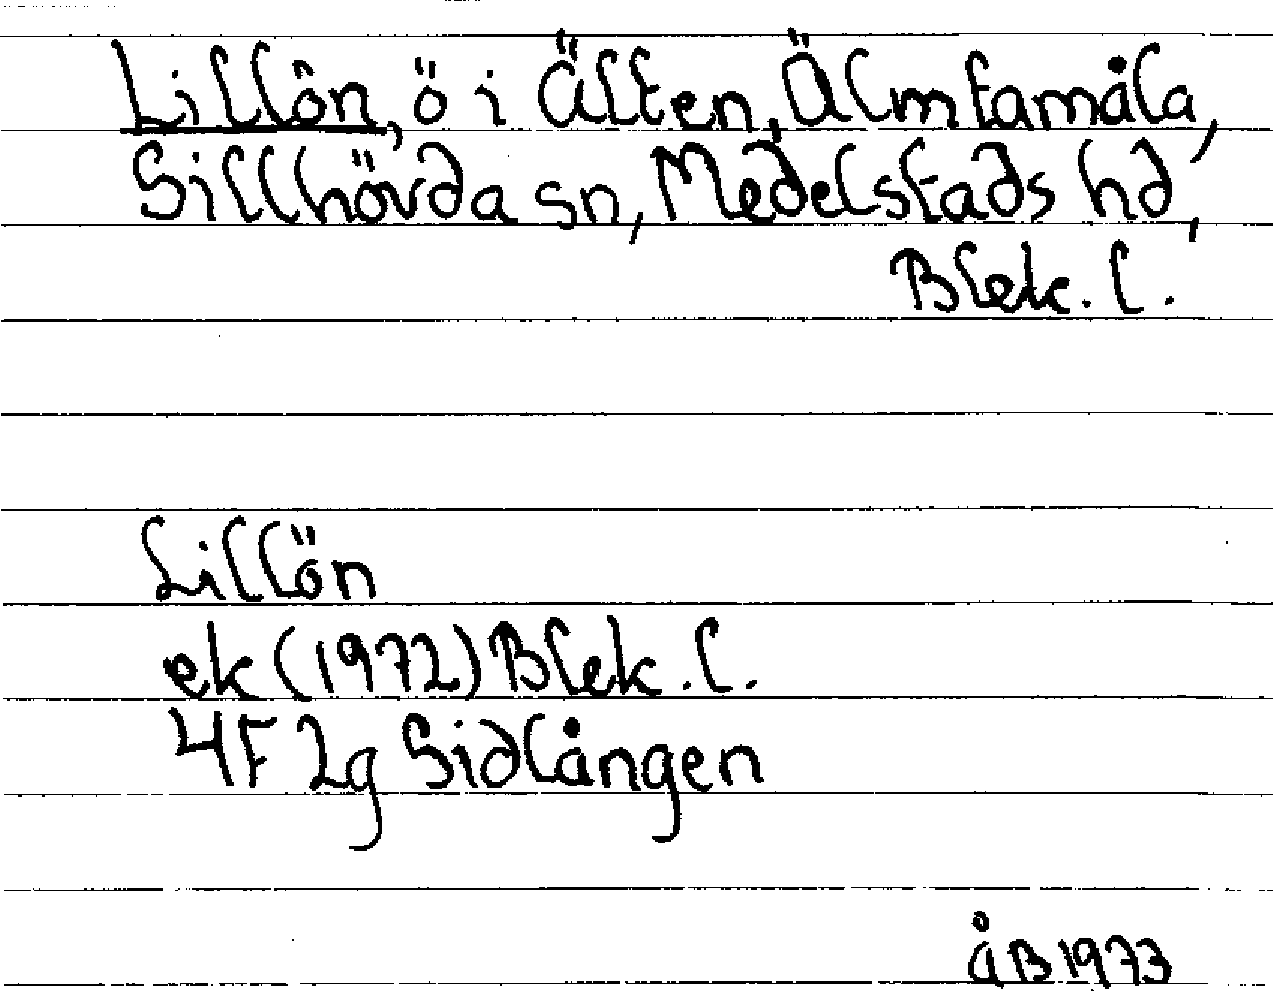 Lillön, ö i Älten, Älmtamåla,
Sillhövda sn, Medelstads hd,
Blek. l.
Lillön
ek (1972) Blek. l.
4F 2g Sidlången
åB 1973